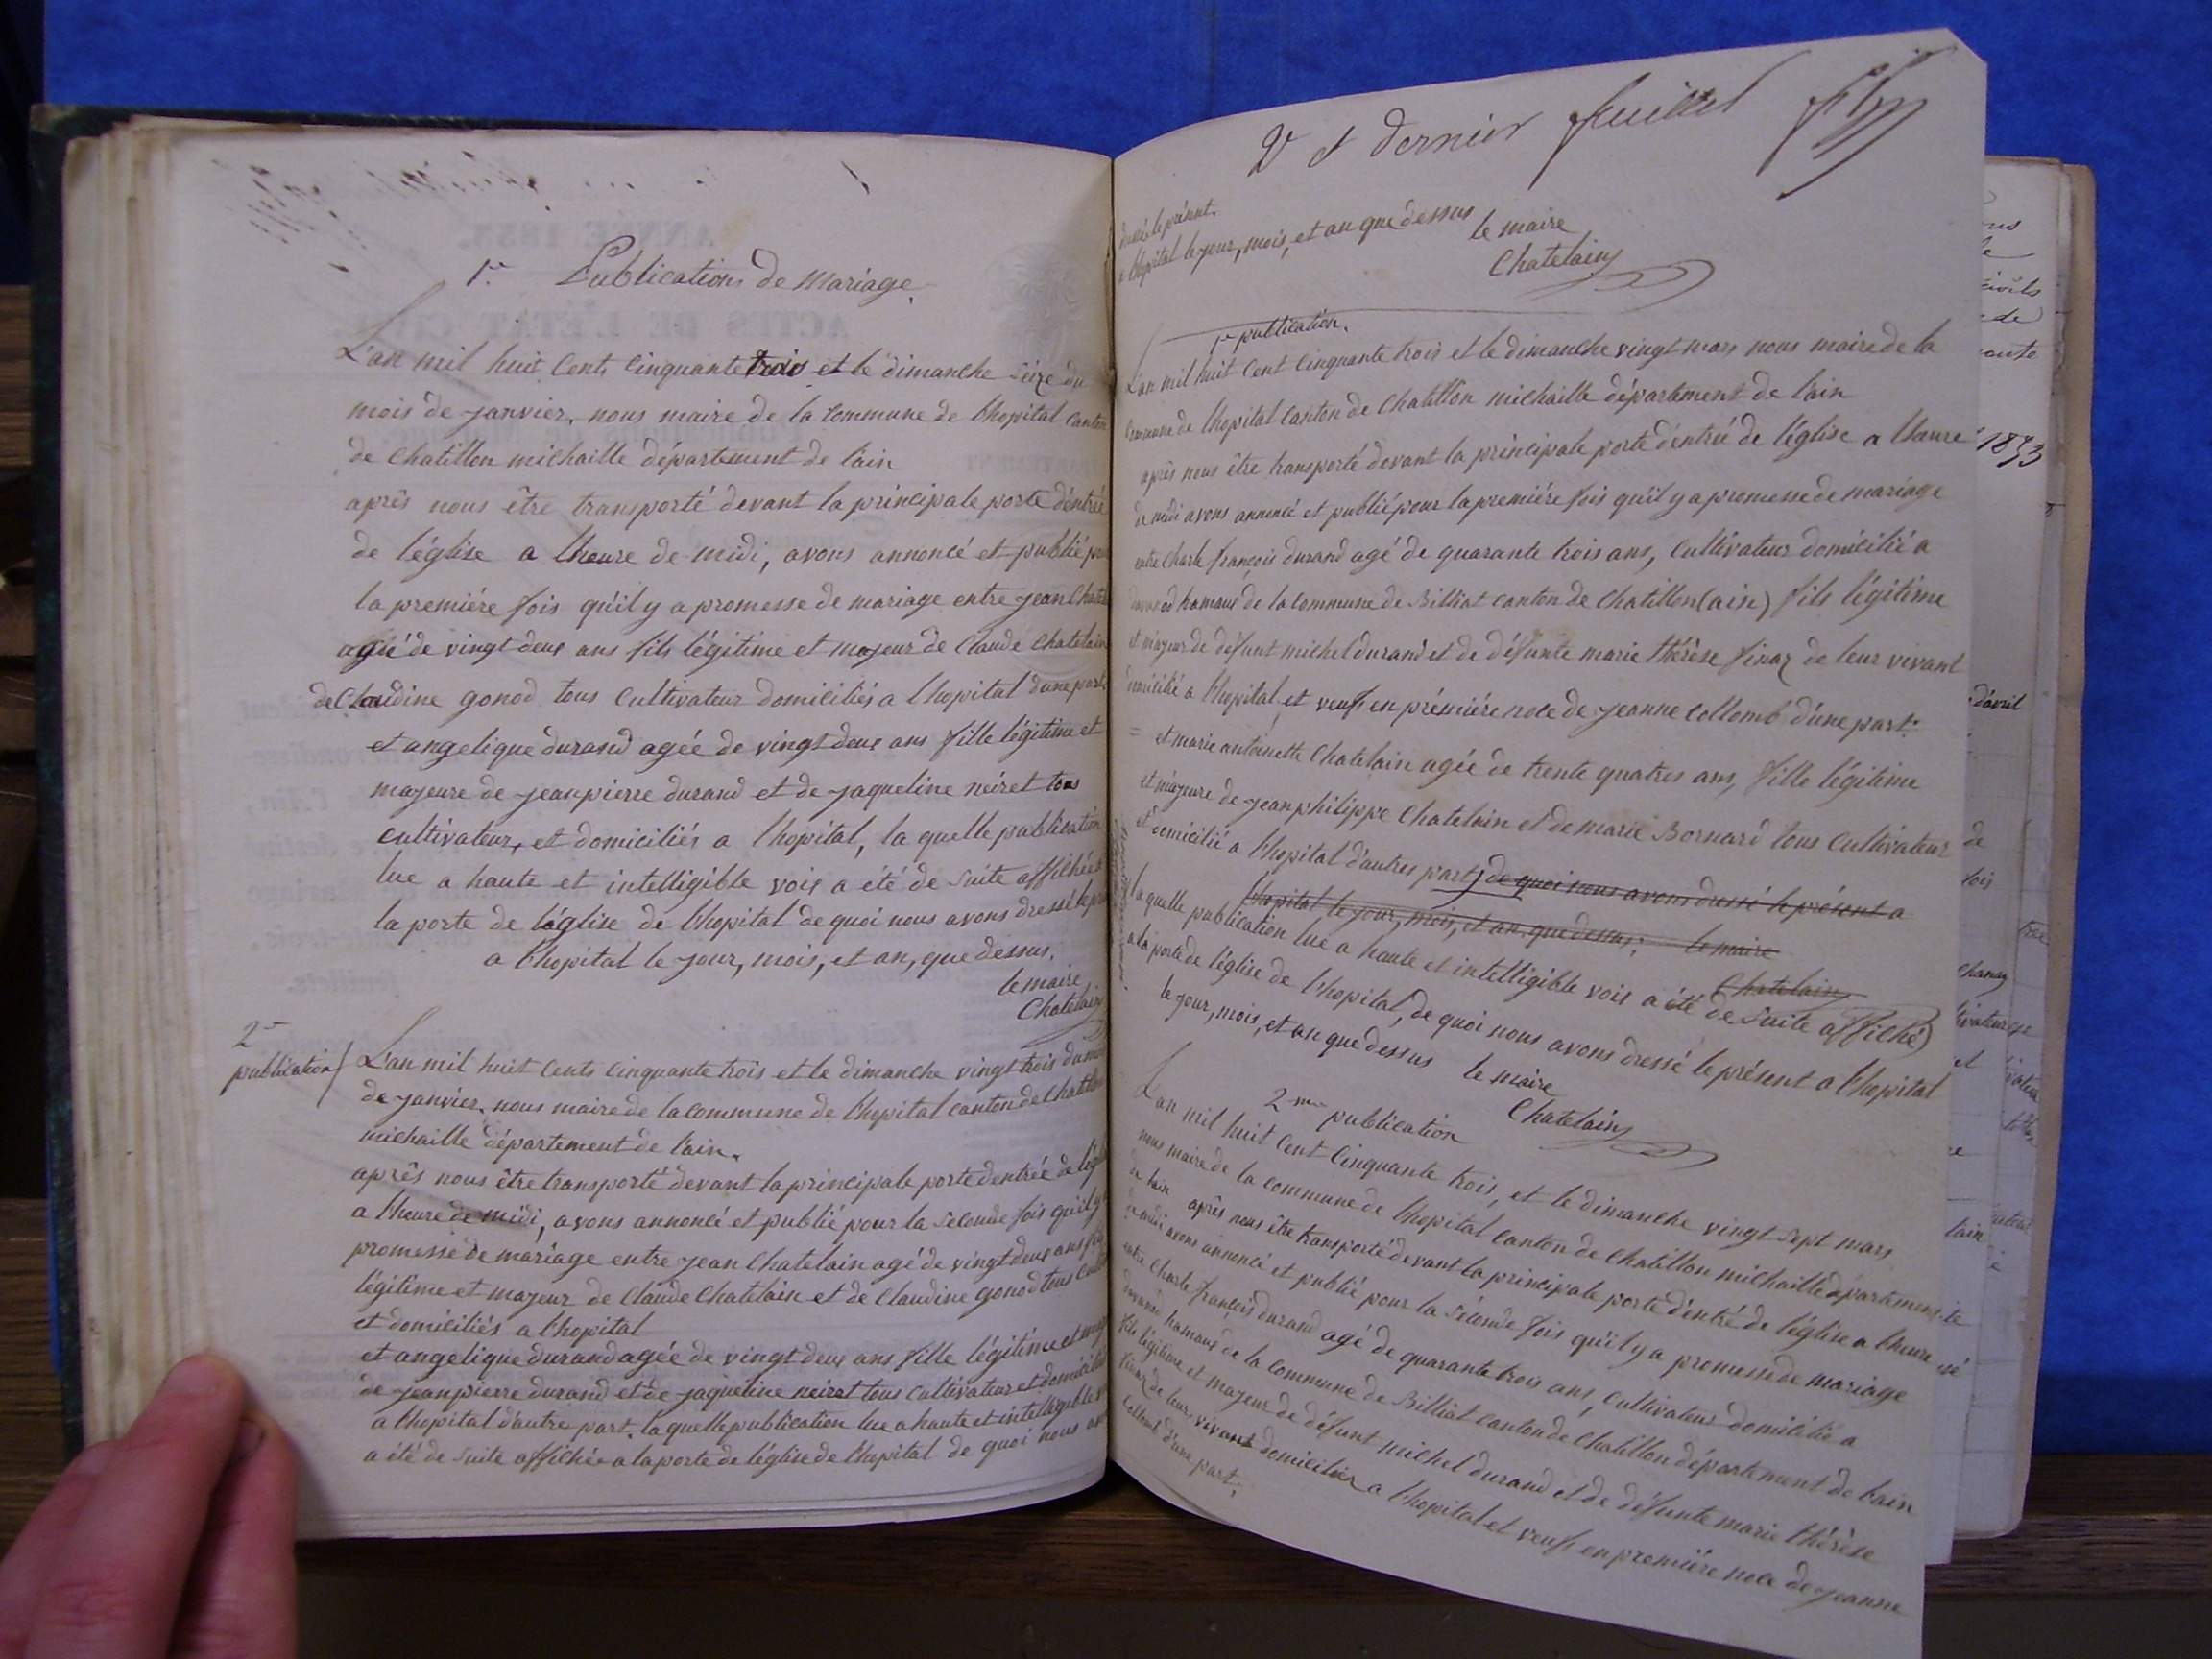 1re Publications de Mariage.
L'an mil huit Cents Cinquante trois et le dimanche seize du
mois de janvier, nous maire de la Commune de lhopital canton
de Chatillon michaille département de l'ain
après nous être transporté devant la principale porte d'éntrée
de l'église a lheure de midi, avons annoncé et publié pour
la premiére fois qu'il y a promesse de mariage entre jean Chatelain
agé de vingt deux ans fils légitime et majeur de Claude Chatelain
de Claudine gonod tous Cultivateur domiciliés a lhopital dune part.
et angelique durand agée de vingt deux ans fille légitime et
majeure de jeanpierre durand et de jaqueline néiret tous
cultivateur, et domiciliés a lhopital, la quelle publication
lue a haute et intelligible voix a été de suite affichée a
la porte de léglise de lhopital de quoi nous avons dressé le
a lhopital le jour, mois, et an, que dessus.
le maire
Chatelain
2e
publication
L'an mil huit Cents Cinquante trois et le dimanche vingt trois du mois
de janvier. nous maire de la commune de lhopital canton de Chatillon
michaille département de l'ain.
après nous être transporté devant la principale porte dentrée de l'église
a lheure de midi, avons annoncé et publié pour la seconde fois quil y a
promesse de mariage entre jean Chatelain agé de vingt deux ans fils
légitime et majeur de Claude Chatelain et de Claudine gonod tous
et domiciliés a lhopital
et angelique durand agée de vingt deux ans fille légitime et
de jeanpierre durand et de jaqueline neiret tous Cultivateur et domiciliés
a lhopital d'autre part. la quelle publication lue a haute et intelligible
a été de suite affichée a la porte de léglise de lhopital de quoi nous
2e et dernier feuillet
dressé le présent.
a lhopital le jour, mois, et an que dessus
le maire
Chatelain
1re publication.
L'an mil huit Cent Cinquante trois et le dimanche vingt mars nous maire de la
Commune de lhopital Canton de Chatillon michaille département de l'ain
après nous être transporté devant la principale porte d'éntrée de l'église a lheure
de midi avons annoncé et publié pour la premiére fois qu'il y a promesse de mariage
entre Charle françois durand agé de quarante trois ans, Cultivateur domicilié a
hamaux de la Commune de Billiat canton de Chatillon (ain) fils légitime
et majeur de défunt michel durand et de défunte marie thérèse finaz de leur vivant
domicilié a lhopital et veuf en prémiére noce de jeanne Collomb d'une part.
= et marie antoinette Chatelain agée de trente quatres ans, fille légitime
et majeure de jean philippe Chatelain et de marie Bornard tous Cultivateur
et domicilié a lhopital d'autres part, de quoi nous avons dressé le présent a
lhopital le jour, mois, et an que dessus; le maire
Chatelain
la quelle publication lue a haute et intelligible voix a été de suite affiché
a la porte de l'église de lhopital, de quoi nous avons dressé le présent a lhopital
le jour, mois, et an que dessus le maire
Chatelain
2me publication
L'an mil huit Cent Cinquante trois, et le dimanche vingt sept mars
nous maire de la Commune de lhopital Canton de Chatillon michaille département
de lain après nous être transporté devant la principale porte d'éntré de l'église a lheure
de midi avons annoncé et publié pour la séconde fois qu'il y a promesse de mariage
entre Charle françois durand agé de quarante trois ans, Cultivateur domicilié a
hamaux de la Commune de Billiat Canton de Chatillon département de lain
fils légitime et majeur de défunt michel durand et de défunte marie thérèse
finaz de leur vivant domicilier a lhopital et veuf en premiére noce de jeanne
Collomb d'une part.
1853
d'avril